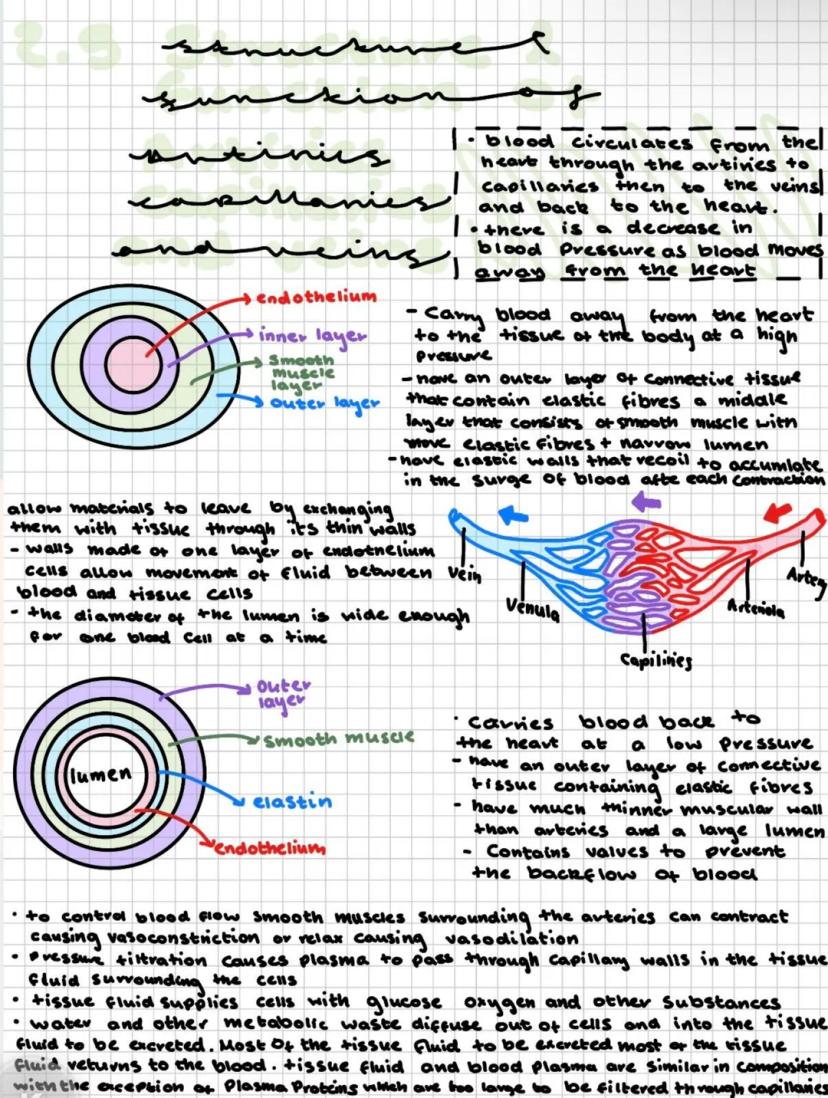 2.3 structure &
function of
arteries
capillaries
and veins
· blood circulates from the
heart through the artiries to
capillaries then to the veins
and back to the heart.
· there is a decrease in
blood pressure as blood moves
away from the heart
endothelium
inner layer
smooth
muscle
layer
outer layer
- Carry blood away from the heart
to the tissue of the body at a high
pressure
- have an outer layer of connective tissue
that contain elastic fibres a middle
layer that consists of smooth muscle with
more elastic fibres + narrow lumen
- have elastic walls that recoil to accumlate
in the surge of blood afte each contraction
allow materials to leave by exchanging
them with tissue through its thin walls
- walls made of one layer of endothelium
cells allow movement of fluid between
blood and tissue cells
- the diameter of the lumen is wide enough
for one blood cell at a time
Vein
Venula
Capilines
Arteriola
Artery
outer
layer
smooth muscle
lumen
elastin
endothelium
· Carries blood back to
the heart at a low pressure
- have an outer layer of connective
tissue containing elastic fibres
- have much thinner muscular wall
than arteries and a large lumen
- Contains valves to prevent
the backflow of blood
· to control blood flow smooth muscles surrounding the arteries can contract
causing vasoconstriction or relax causing vasodilation
· pressure filtration causes plasma to pass through capillary walls in the tissue
fluid surrounding the cells
· tissue fluid supplies cells with glucose oxygen and other substances
· water and other metabolic waste diffuse out of cells and into the tissue
fluid to be excreted. Most of the tissue fluid to be excreted most of the tissue
fluid returns to the blood. tissue fluid and blood plasma are similar in composition
with the exception of Plasma Proteins which are too large to be filtered through capillaries